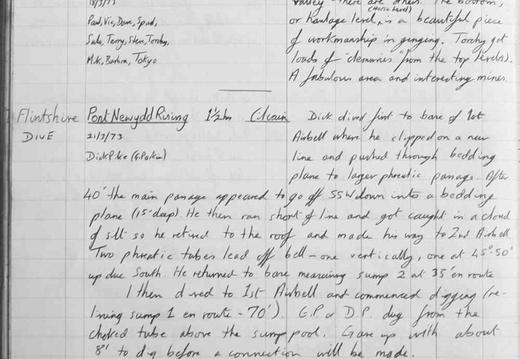 18/3/73
valley - there are others. The bottom,
(horse level)
Paul, Vic, Dave, Spud,
or haulage level, is a beautiful piece
Sula, Terry, Steve, Torchy,
of workmanship in ginging. Torchy got
Mike, Barbara, Tokyo
loads of "clennies" from the top levels).
A fabulous area and interesting mines.
Flintshire Pont Newydd Rising 1½ hrs Clwain Dick dived first to base of 1st
DIVE 21/3/73
Airbell where he clipped on a new
Dick Pike (G. Potkin)
line and pushed through bedding
plane to larger phreatic passage. After
40' the main passage appeared to go off SSW down into a bedding
plane (15' deep) He then ran short of line and got caught in a cloud
of silt so he returned to the roof and made his way to 2nd Airbell
Two phreatic tubes lead off bell - one vertically, one at 45°-50°
up due South. He returned to base measuring sump 2 at 35' en route
I then dived to 1st Airbell and commenced digging (re-
lining sump 1 en route - 70'). G.P. or D.P. dug from the
choked tube above the sump pool. Gave up with about
8" to dig before a connection will be made.